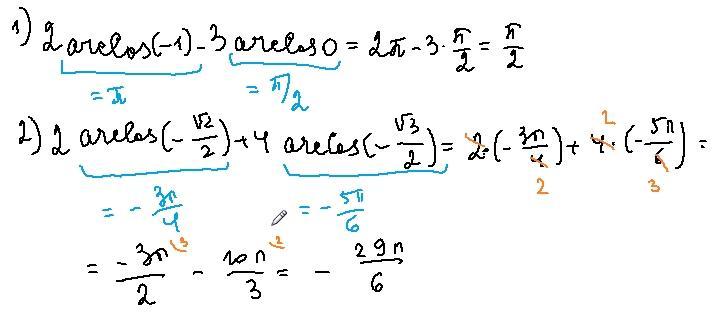 1) 2 arccos(-1) - 3 arccos 0 = 2π - 3 · π/2 = π/2
= π = π/2
2) 2 arccos(-√2/2) + 4 arccos(-√3/2) = 2 · (-3π/4) + 4 · (-5π/6) =
2
2 3
= -3π/4 = -5π/6
= -3π/2 \3 - 10π/3 \2 = - 29π/6